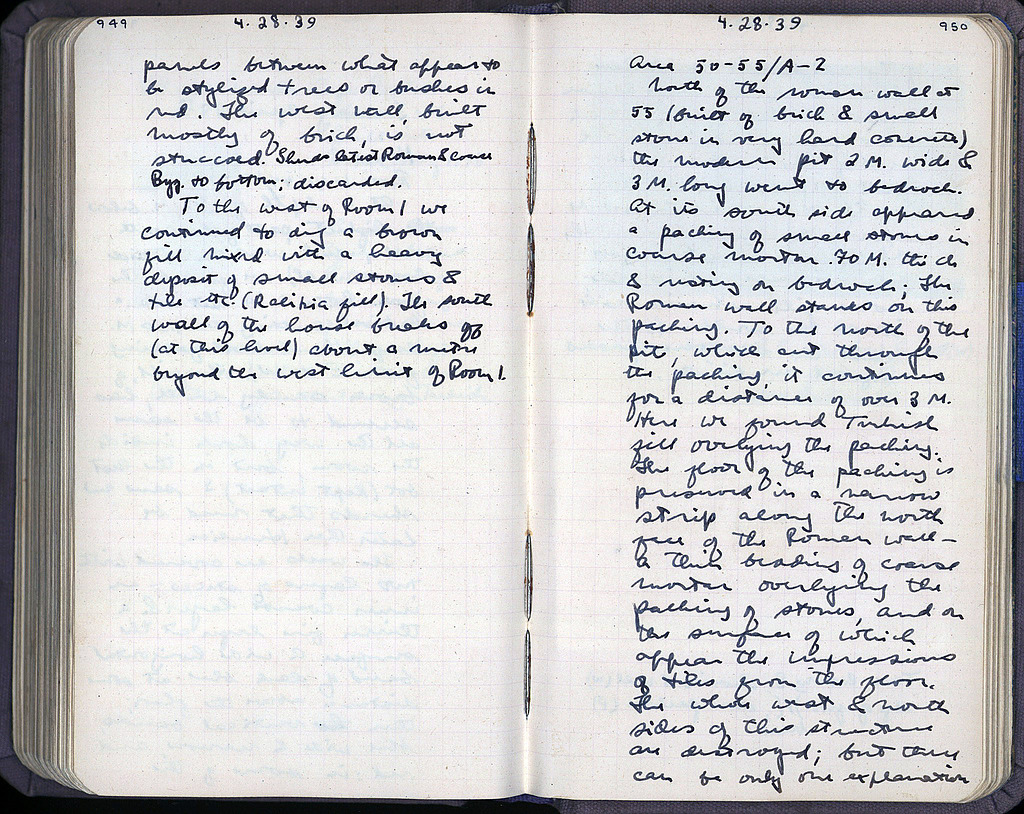 949
4.28.39
panels between what appear to
be stylized trees or bushes in
red. The west wall, built
mostly of brick, is not
stuccoed. Sherds latest Roman & coarse
Byz. to bottom; discarded.
To the west of Room 1 we
continued to dig a brown
fill mixed with a heavy
deposit of small stones &
tile etc. (Rolitika fill). The south
wall of the house breaks off
(at this level) about a metre
beyond the west limit of Room 1.
4.28.39
950
Area 50-55/A-2
North of the Roman wall at
55 (built of brick & small
stone in very hard concrete)
the modern pit 2 M. wide &
3 M. long went to bedrock.
At its south side appeared
a packing of small stones in
coarse mortar .70 M. thick
& resting on bedrock; the
Roman wall stands on this
packing. To the north of the
pit, which cut through
the packing, it continues
for a distance of over 3 M.
Here we found Turkish
fill overlying the packing.
The floor of the packing is
preserved in a narrow
strip along the north
face of the Roman wall –
a thin bedding of coarse
mortar overlying the
packing of stones, and on
the surface of which
appear the impressions
of tiles from the floor.
The whole west & north
sides of this structure
are destroyed; but there
can be only one explanation